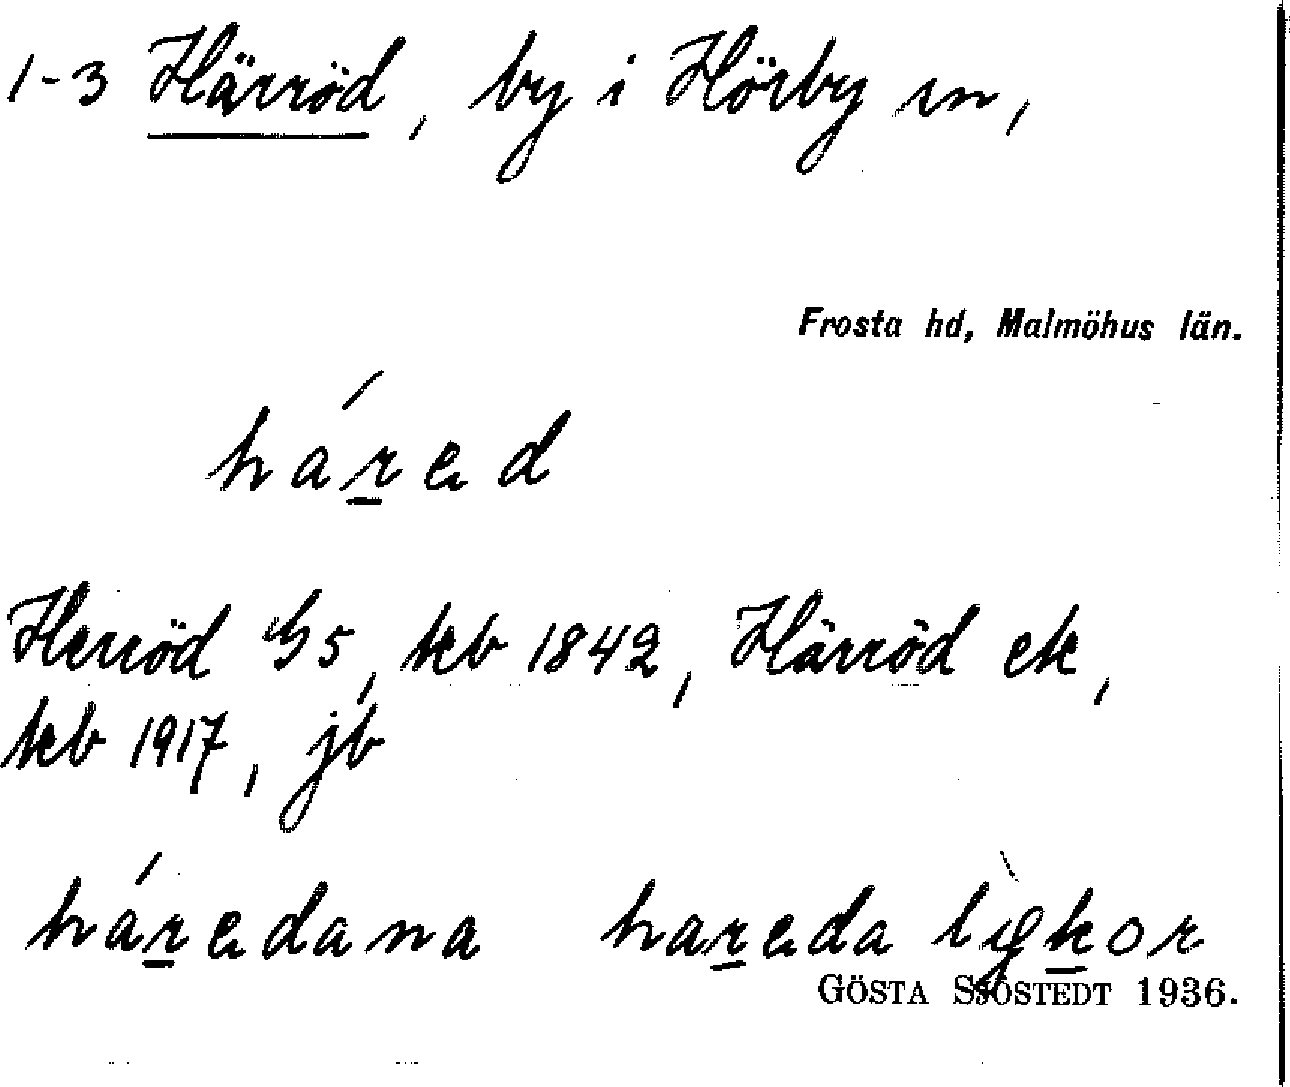 1-3 Härröd, by i Hörby sn,
Frosta hd, Malmöhus län.
háred
Herröd G5, kb 1842, Härröd ek,
kb 1917, jb
háredana hareda lỳckor
GÖSTA SJÖSTEDT 1936.